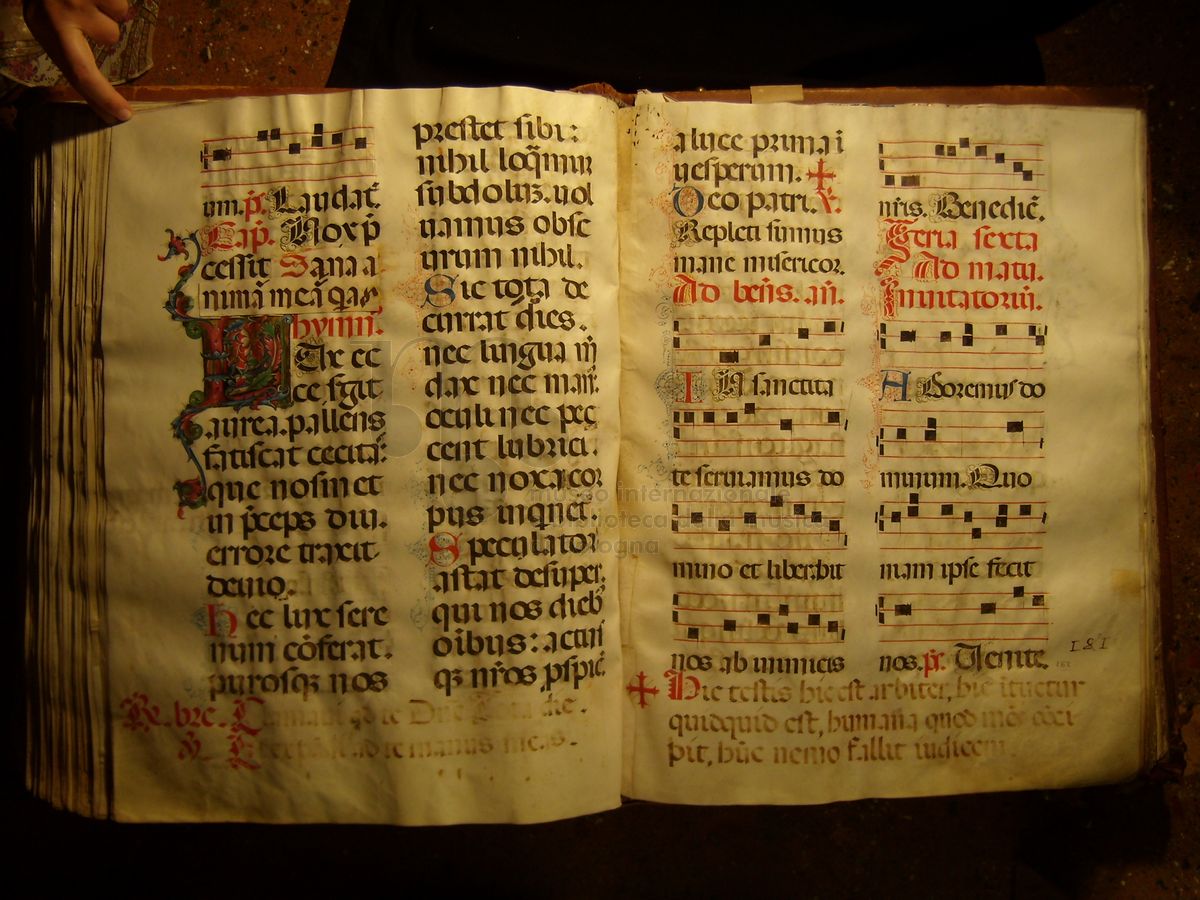 um. p̄. Laudat̄.
Cap̄. Nox p̄
cessit Sana a
nimā meā qa⁊
hymn̄.
Lux ec
ce sgit
aurea. pallens
fatiscat cecitā:
que nosmet
in p̄ceps diu.
errore traxit
deuio.
hec lux sere
num cōferat.
purosqꝫ nos
prestet sibi:
nihil loq̄mur
subdoluꝫ. uol
uamus obsc
urum nihil.
Sic tota de
currat dies.
nec lingua m̄
dax nec man᷒
oculi nec pec
cent lubrici.
nec noxa cor
pus inquet.
Speculator
astat desuper.
qui nos dieb᷒
oībus: actus
qꝫ nr̄os ꝓspic̄
Re. bre. Clamaui ad te Dn̄e
℣. Et extēde ad te manus meas.
a luce prima i
uesperum. ✠
Deo patri. ℣.
Repleti sumus
mane misericor.
Ad ben̄s. an̄.
In sanctita
te seruiamus do
mino et liberabit
nos ab inimicis
nr̄is. Benedic̄.
Feria sexta
Ad matu.
Inuitatoriū.
Adoremus do
minum. Quo
niam ipse fecit
nos. p̄s. Uenite.
181
✠ Hic testis hic est arbiter, hic ituetur
quidquid est, humana quod mēs cōci-
pit, hūc nemo fallit iudicem.
museo internazionale
biblioteca della musica
bologna